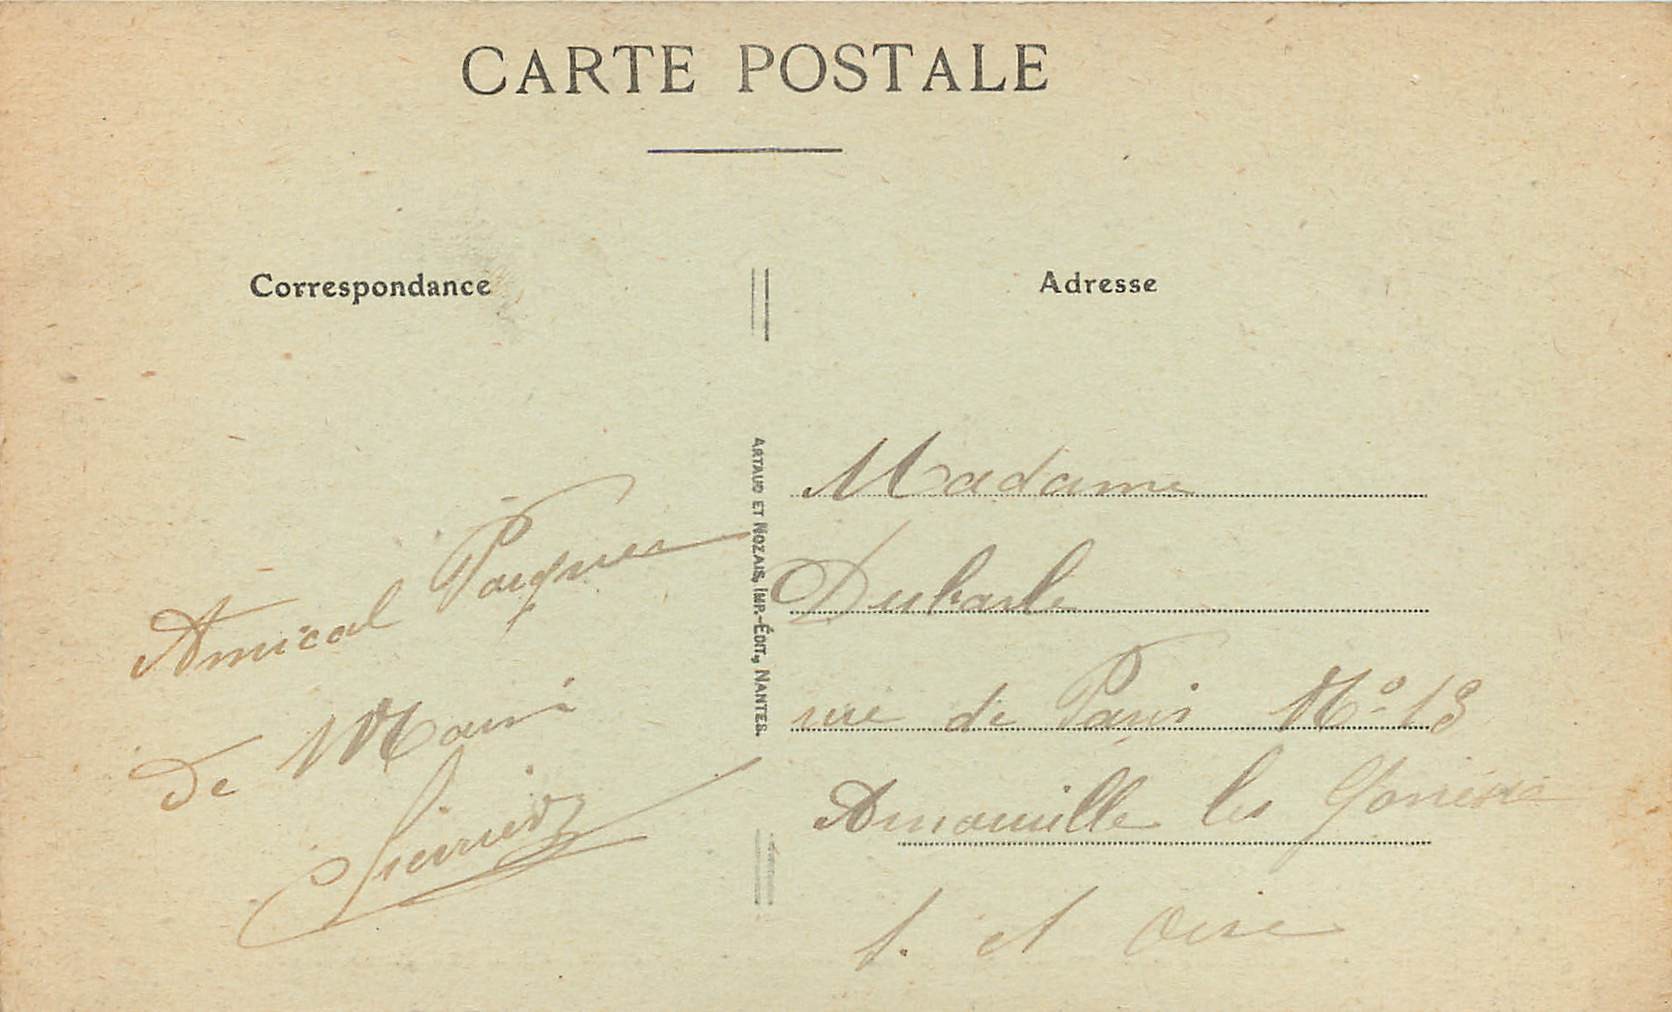 CARTE POSTALE
Correspondance
Adresse
ARTAUD ET NOZAIS, IMP.-ÉDIT., NANTES.
Amical Pasques
de Mami
Madame
Dubarle
rue de Paris No 13
Arnouville les Gonesse
S. et Oise